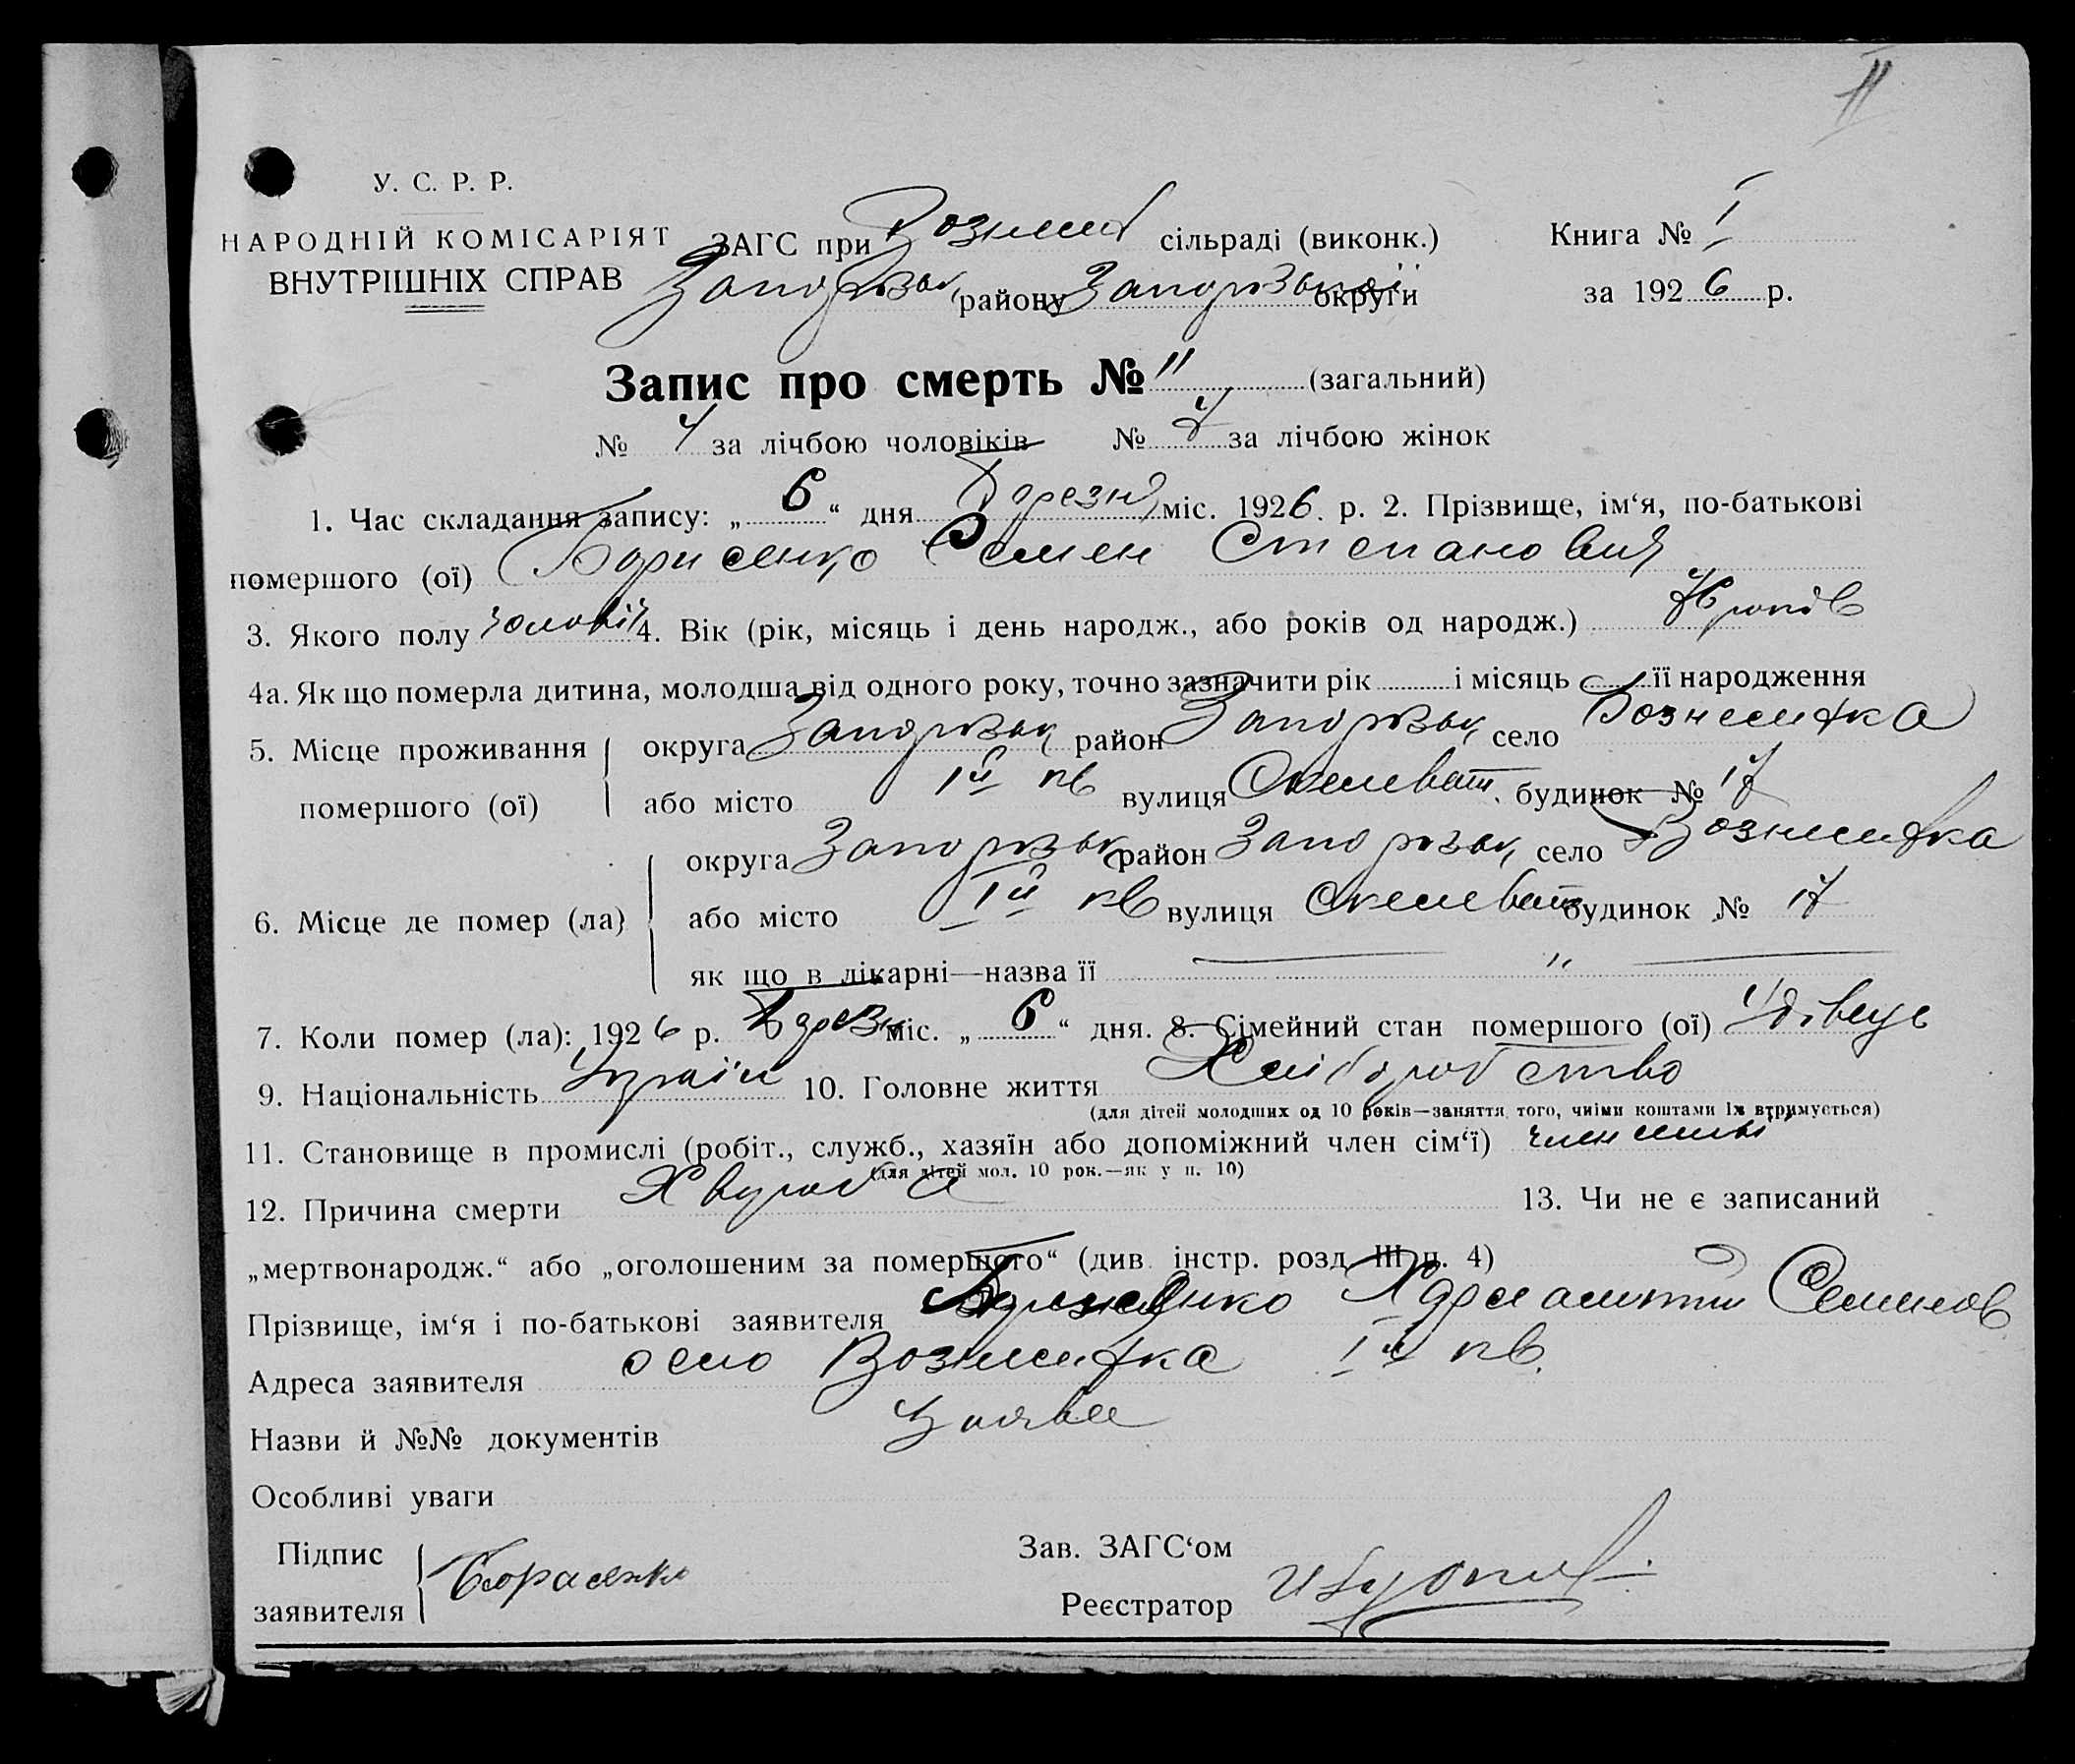 11
У. С. Р. Р.
НАРОДНІЙ КОМІСАРІЯТ
ВНУТРІШНІХ СПРАВ
ЗАГС при Вознесе сільраді (виконк.)
Запорізьк району Запорізької округи
Книга № I
за 1926 р.
Запис про смерть № 11 (загальний)
№ 4 за лічбою чоловіків № за лічбою жінок
1. Час складання запису: „ 6 “ дня Березн міс. 1926. р. 2. Прізвище, ім‘я, по-батькові
помершого (ої) Борисенко Семен Степанович
3. Якого полу чоловіч 4. Вік (рік, місяць і день народж., або років од народж.) років
4а. Як що померла дитина, молодша від одного року, точно зазначити рік і місяць її народження
5. Місце проживання округа Запорізьк район Запорізьк село Вознесенка
помершого (ої) або місто Iй кв вулиця Скелеват. будинок № 17
округа Запорізьк район Запорізьк село Вознесенка
6. Місце де помер (ла) або місто Iй кв вулиця Скелеват будинок № 17
як що в лікарні—назва її — „ —
7. Коли помер (ла): 1926 р. Березн міс. „ 6 “ дня. 8. Сімейний стан помершого (ої) Удівець
9. Національність Україн 10. Головне життя Хліборобство
(для дітей молодших од 10 років—заняття того, чиїми коштами їх втримується)
11. Становище в промислі (робіт., служб., хазяїн або допоміжний член сім‘ї) член семьї
(для дітей мол. 10 рок.—як у п. 10)
12. Причина смерти Хвороба 13. Чи не є записаний
„мертвонародж.“ або „оголошеним за помершого“ (див. інстр. розд. III п. 4)
Прізвище, ім‘я і по-батькові заявителя Борисенко Семенов
Адреса заявителя село Вознесенка Iй кв.
Назви й №№ документів Заява
Особливі уваги
Підпис заявителя Борасенко
Зав. ЗАГС‘ом
Реєстратор